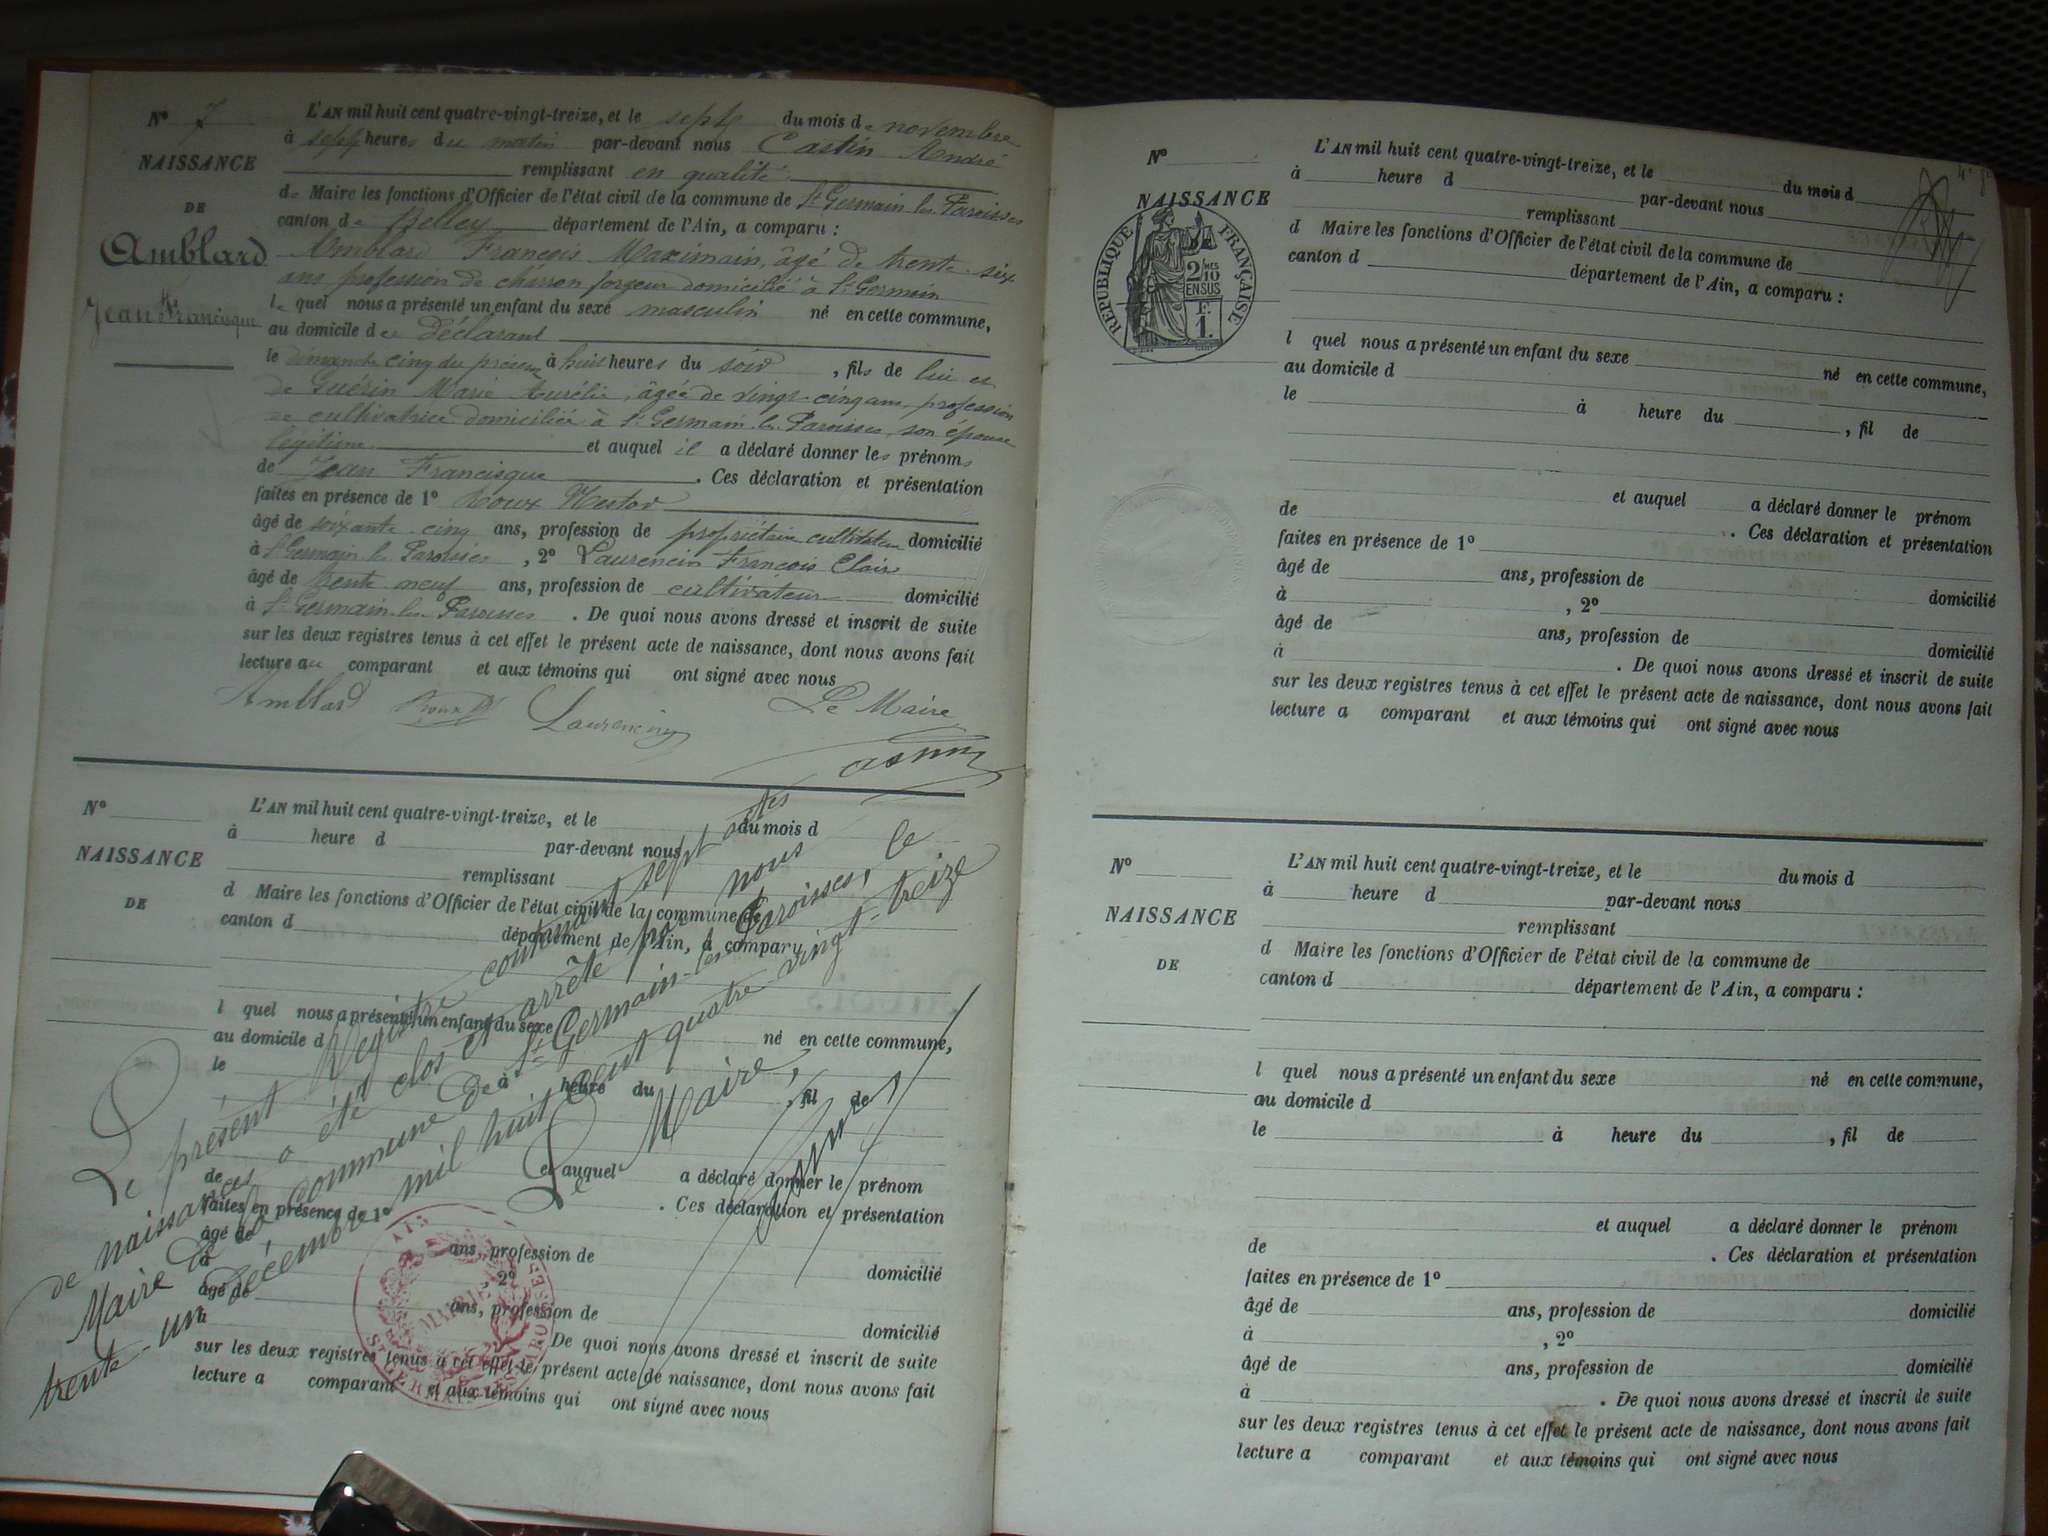 Nº 7
NAISSANCE
DE
Amblard
Jean Francisque
L'AN mil huit cent quatre-vingt-treize, et le sept du mois de novembre
à sept heures du matin par-devant nous Castin André
remplissant en qualité
de Maire les fonctions d'Officier de l'état civil de la commune de St Germain les Paroisses
canton de Belley département de l'Ain, a comparu :
Amblard François Maximain, âgé de trente-six
ans profession de charron forgeur domicilié à St Germain
le quel nous a présenté un enfant du sexe masculin né en cette commune,
au domicile de déclarant
le dimanche cinq du présent à huit heures du soir, fils de lui et
de Guérin Marie Aurélie, âgée de vingt-cinq ans, profession
de cultivatrice domiciliée à St Germain les Paroisses, son épouse
légitime et auquel il a déclaré donner les prénoms
de Jean Francisque. Ces déclaration et présentation
faites en présence de 1º Roux Nestor
âgé de soixante cinq ans, profession de propriétaire cultivateur domicilié
à St Germain les Paroisses, 2º Laurencin François Claire
âgé de trente neuf ans, profession de cultivateur domicilié
à St Germain les Paroisses. De quoi nous avons dressé et inscrit de suite
sur les deux registres tenus à cet effet le présent acte de naissance, dont nous avons fait
lecture au comparant et aux témoins qui ont signé avec nous
Amblard Roux Laurencin Le Maire
Castin
Nº
NAISSANCE
DE
L'AN mil huit cent quatre-vingt-treize, et le du mois d
à heure d par-devant nous
remplissant
d Maire les fonctions d'Officier de l'état civil de la commune de
canton d département de l'Ain, a comparu :
l quel nous a présenté un enfant du sexe
au domicile d né en cette commune,
le à heure du , fil de
et auquel a déclaré donner le prénom
de . Ces déclaration et présentation
faites en présence de 1º
âgé de ans, profession de domicilié
à , 2º
âgé de ans, profession de domicilié
à . De quoi nous avons dressé et inscrit de suite
sur les deux registres tenus à cet effet le présent acte de naissance, dont nous avons fait
lecture a comparant et aux témoins qui ont signé avec nous
Le présent Registre contenant sept actes
de naissances a été clos et arrêté par nous
Maire de la commune de St Germain-les Paroisses, le
trente-un décembre mil huit cent quatre vingt-treize
Le Maire,
Castin
MAIRIE
ST GERMAIN LES PAROISSES
AIN
Nº
NAISSANCE
RÉPUBLIQUE FRANÇAISE
2/10
EN SUS
F.
1.
L'AN mil huit cent quatre-vingt-treize, et le du mois d
à heure d par-devant nous
remplissant
d Maire les fonctions d'Officier de l'état civil de la commune de
canton d département de l'Ain, a comparu :
l quel nous a présenté un enfant du sexe né en cette commune,
au domicile d
le à heure du , fil de
et auquel a déclaré donner le prénom
de . Ces déclaration et présentation
faites en présence de 1º
âgé de ans, profession de domicilié
à , 2º
âgé de ans, profession de domicilié
à . De quoi nous avons dressé et inscrit de suite
sur les deux registres tenus à cet effet le présent acte de naissance, dont nous avons fait
lecture a comparant et aux témoins qui ont signé avec nous
Nº
NAISSANCE
DE
L'AN mil huit cent quatre-vingt-treize, et le du mois d
à heure d par-devant nous
remplissant
d Maire les fonctions d'Officier de l'état civil de la commune de
canton d département de l'Ain, a comparu :
l quel nous a présenté un enfant du sexe né en cette commune,
au domicile d
le à heure du , fil de
et auquel a déclaré donner le prénom
de . Ces déclaration et présentation
faites en présence de 1º
âgé de ans, profession de domicilié
à , 2º
âgé de ans, profession de domicilié
à . De quoi nous avons dressé et inscrit de suite
sur les deux registres tenus à cet effet le présent acte de naissance, dont nous avons fait
lecture a comparant et aux témoins qui ont signé avec nous